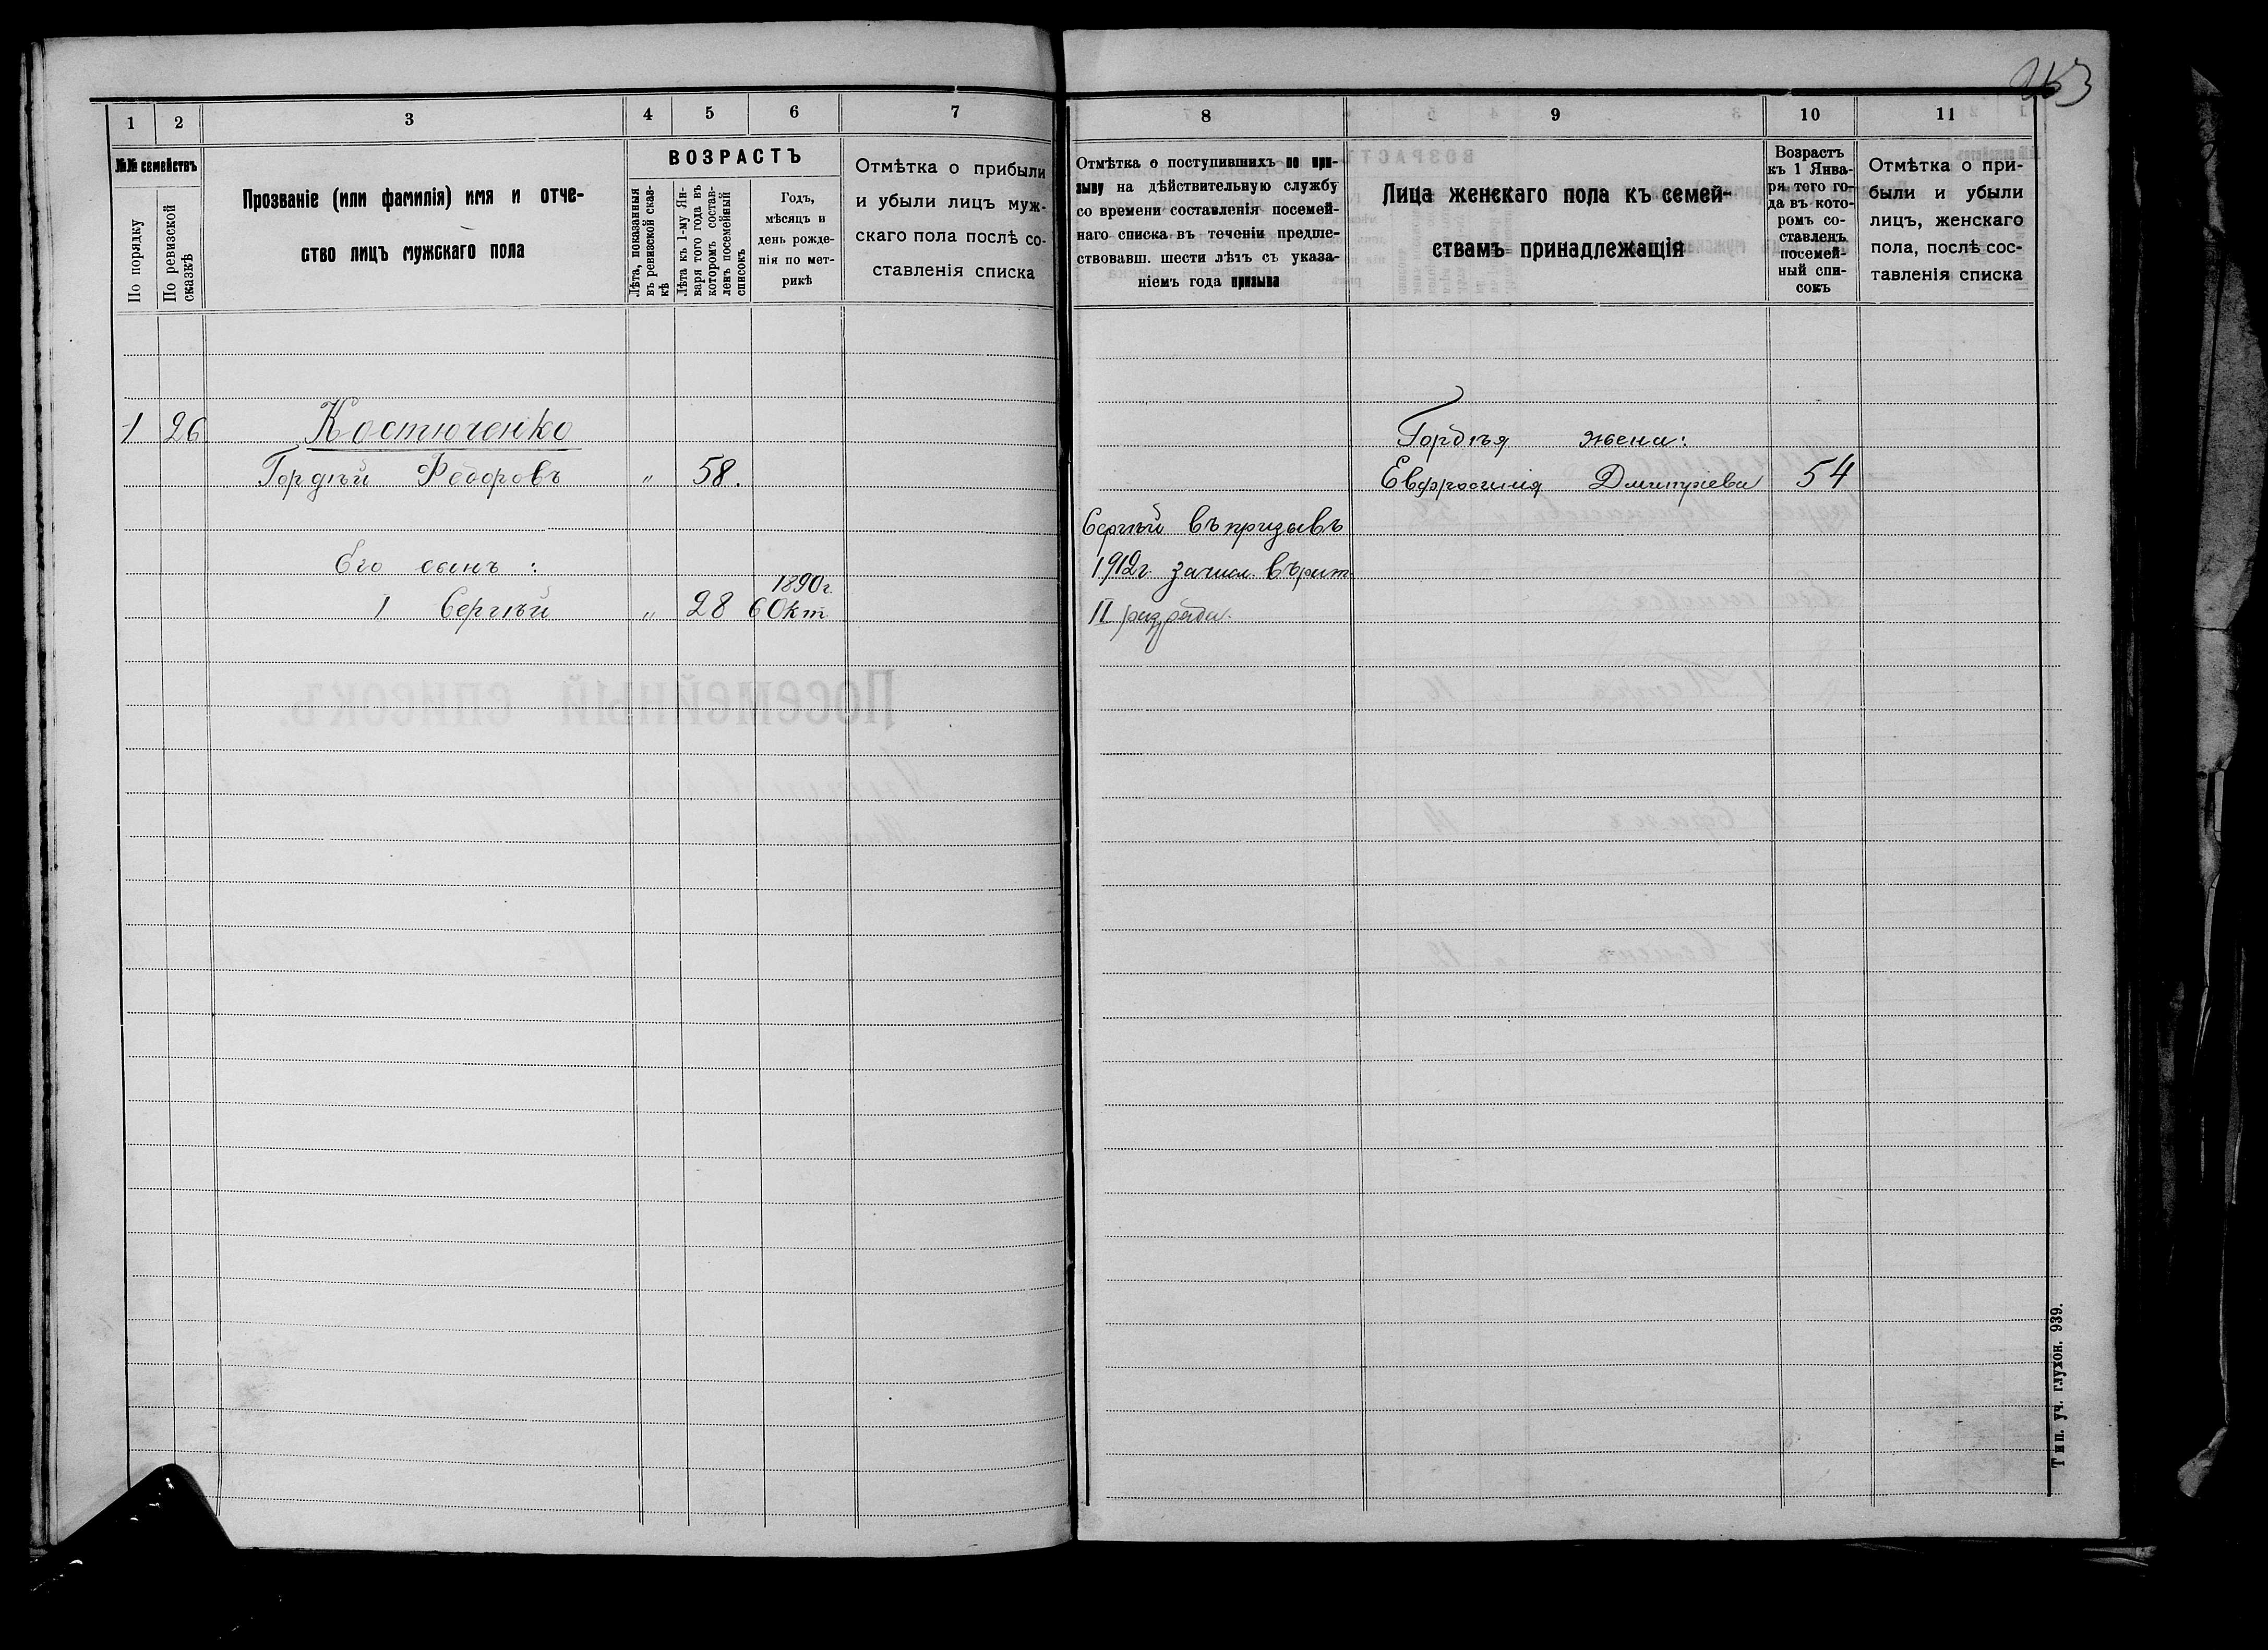 263
1 2 3 4 5 6 7
№№ семействъ
По порядку
По ревизской
сказкѣ
Прозваніе (или фамилія) имя и отче-
ство лицъ мужскаго пола
ВОЗРАСТЪ
Лѣта, показанныя
въ ревизской сказ-
кѣ
Лѣта къ 1-му Ян-
варя того года въ
которомъ состав-
ленъ посемейный
списокъ
Годъ,
мѣсяцъ и
день рожде-
нія по мет-
рикѣ
Отмѣтка о прибыли
и убыли лицъ муж-
скаго пола послѣ со-
ставленія списка
1 26 Костюченко
Гордѣй Федоровъ " 58.
Его сынъ:
1890г.
1 Сергѣй " 28 6 Окт
8 9 10 11
Отмѣтка о поступившихъ по при-
зыву на дѣйствительную службу
со времени составленія посемей-
наго списка въ теченіи предше-
ствовавш. шести лѣтъ съ указа-
ніемъ года призыва
Лица женскаго пола къ семей-
ствамъ принадлежащія
Возрастъ
къ 1 Янва-
ря того го-
да въ кото-
ромъ со-
ставленъ
посемей-
ный спи-
сокъ
Отмѣтка о при-
были и убыли
лицъ, женскаго
пола, послѣ сос-
тавленія списка
Гордѣя жена:
Евфросинія Дмитріева 54
Сергѣй въ призывъ
1912г. зачисл. въ рат.
II разряда.
Тип. уч. глухон. 939.